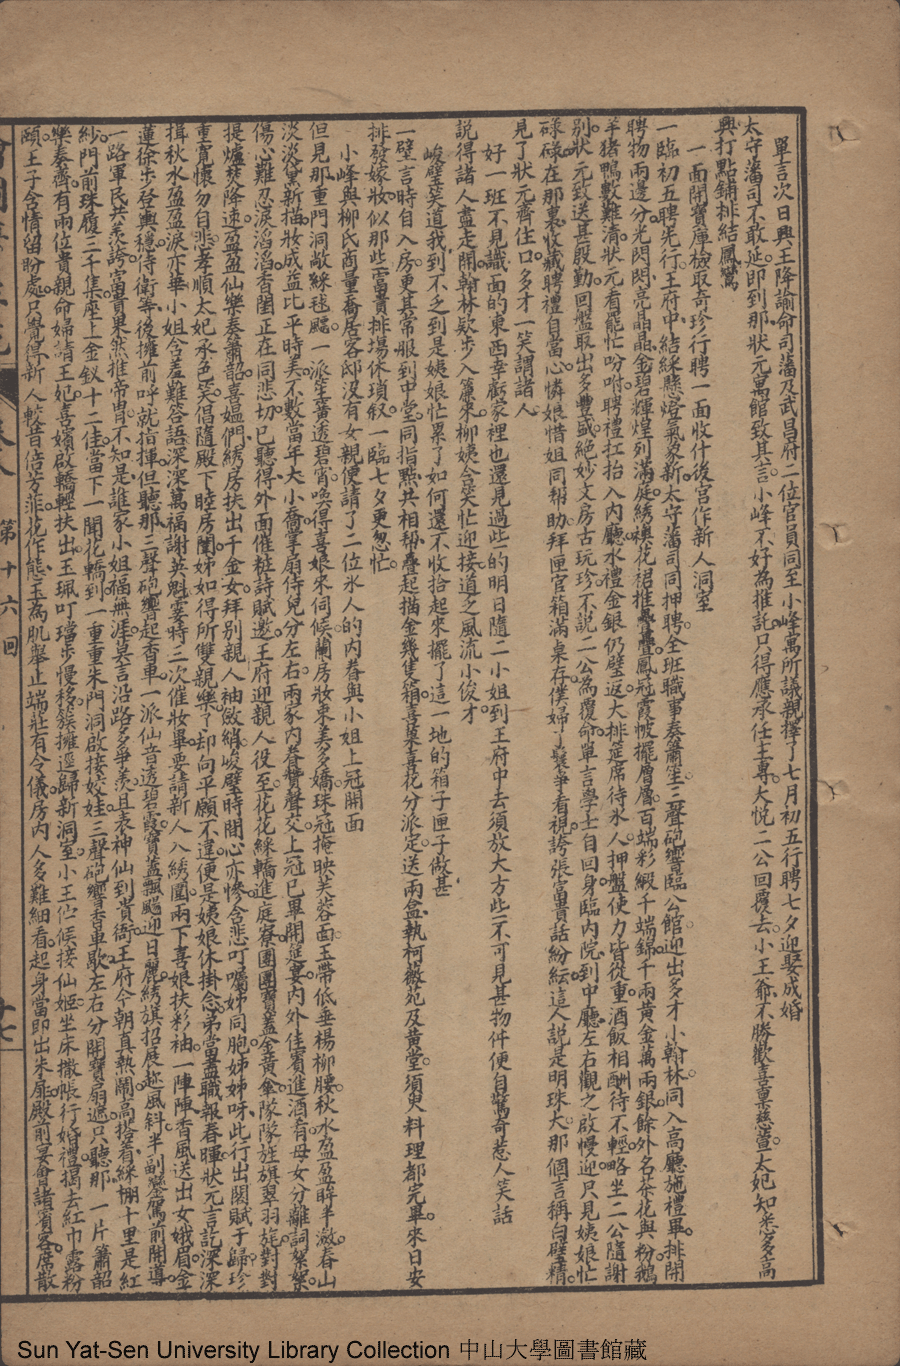 單言次日興王降諭命司藩及武昌府二位官員同至小峰寓所議親擇了七月初五行聘七夕迎娶成婚
太守藩司不敢延即到那狀元寓館致其言小峰不好為推託只得應承任主專大悅二公回覆去小王爺不勝歡喜稟慈萱太妃知悉多高
興打點鋪排結鳳鸞
一面開寶庫檢取奇珍行聘一面收什後宮作新人洞室
一臨初五聘先行王府中結綵懸燈氣象新太守藩司同押聘全班職事奏簫笙三聲砲響臨公館迎出多才小翰林同入高廳施禮畢排開
聘物兩邊分光閃閃亮晶晶金碧輝煌列滿庭綉襖花裙推疊疊鳳冠霞帔擺層層百端彩緞千端錦千兩黃金萬兩銀餘外名茶花與粉鵝
羊豬鴨數難清狀元看罷忙吩咐聘禮扛抬入內廳水禮金銀仍璧返大排筵席待氷人押盤使力皆從重酒飯相酬待不輕略坐二公隨謝
別狀元致送甚殷勤回盤取出多豐盛絕妙文房古玩珍不說二公為覆命單言學士自回身臨內院到中廳左右觀之啟慢迎只見姨娘忙
碌碌在那裏收藏聘禮自當心憐娘惜姐同帮助拜匣官箱滿桌存僕婦丫鬟爭看視誇張富貴話紛紜這人說是明珠大那個言稱白璧精
見了狀元齊住口多才一笑謂諸人
好一班不見識面的東西幸虧家裡也還見過些的明日隨二小姐到王府中去須放大方些不可見甚物件便自驚奇惹人笑話
說得諸人盡走開翰林欵步入簾來柳姨含笑忙迎接道之風流小俊才
峻璧笑道我到不之到是姨娘忙累了如何還不收拾起來擺了這一地的箱子匣子做甚
一壁言時自入房更其常服到中堂同指點共相幫疊起描金幾隻箱喜菓喜花分派定送兩盒執柯薇苑及黃堂須臾料理都完畢來日安
排發嫁妝似那些富貴排場休瑣叙一臨七夕更怱忙
小峰與柳氏商量喬居客邸沒有女親便請了二位氷人的內眷與小姐上冠開面
但見那重門洞敞綵毬飄一派笙簧透碧霄喚得喜娘來伺候蘭房妝束美多嬌珠冠掩映芙蓉面玉帶低垂楊柳腰秋水盈盈眸半瀲春山
淡淡黛新描妝成益比平時美不數當年大小喬掌扇侍兒分左右兩家內眷贊聲交上冠已畢開筵宴內外佳賓進酒肴母女分離詞絮絮
傷心難忍淚滔滔香閨正在同悲切已聽得外面催粧詩賦邀王府迎親人役至花花綵轎進庭寮團團寶蓋金黃傘隊隊旌旗翠羽旄對對
提爐焚降速盈盈仙樂奏簫韶喜媪們綉房扶出千金女拜別親人袖斂綃峻璧時間心亦慘含悲叮囑姊同胞姊姊呀此行出閣賦于歸珍
重寬懷勿自悲孝順太妃承色笑倡隨殿下睦房闈姊如得所雙親樂了却向平願不違便是姨娘休掛念弟當盡職報春暉狀元言託深深
揖秋水盈盈淚亦垂小姐含羞難答語深深萬福謝英魁霎時三次催妝畢要請新人入綉圍兩下喜娘扶彩袖一陣陣香風送出女娥眉金
蓮徐步登輿穩侍衛等後擁前呼就指揮但聽那三聲砲響起香車一派仙音透碧霞寶蓋飄颺迎日麗綉旗招展趂風斜半副鑾駕前開導
一路軍民共羨誇富貴果然推帝胄不知是誰家小姐福無涯莫言沿路多爭羨且表神仙到貴衙王府今朝真熱鬧高搭着綵棚十里是紅
紗門前珠履三千集座上金釵十二佳當下一聞花轎到一重重朱門洞啟接姣娃三聲砲響香車歇左右分開寶扇遮只聽那一片簫韶
樂奏齊有兩位貴親命婦請王妃喜嬪啟轎輕扶出玉珮叮璫步慢移簇擁逕歸新洞室小王佇候接仙姬坐床撒帳行婚禮揭去紅巾露粉
頤王子含情留盼處只覺得新人較昔倍芳菲花作態玉為肌舉止端莊有令儀房內人多難細看起身當即出朱扉殿前宴會諸賓客席散
第十六回
Sun Yat-Sen University Library Collection 中山大學圖書館藏